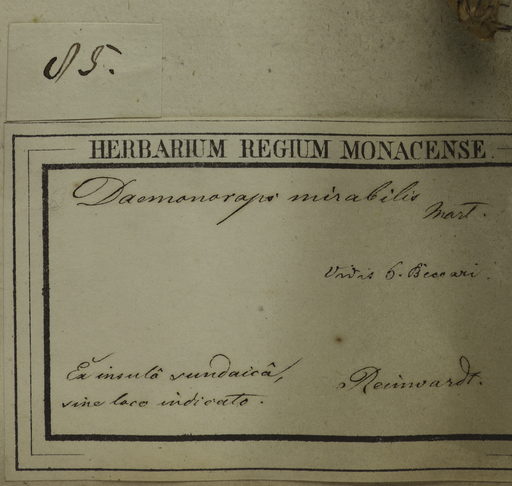 85.
HERBARIUM REGIUM MONACENSE.
Daemonorops mirabilis
Mart.
Vidit O. Beccari.
Ex insulâ sundaicâ,
sine loco indicato.
Reinwardt.